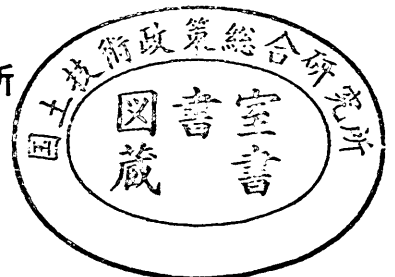 所
国土技術政策総合研究所
図書室
蔵書